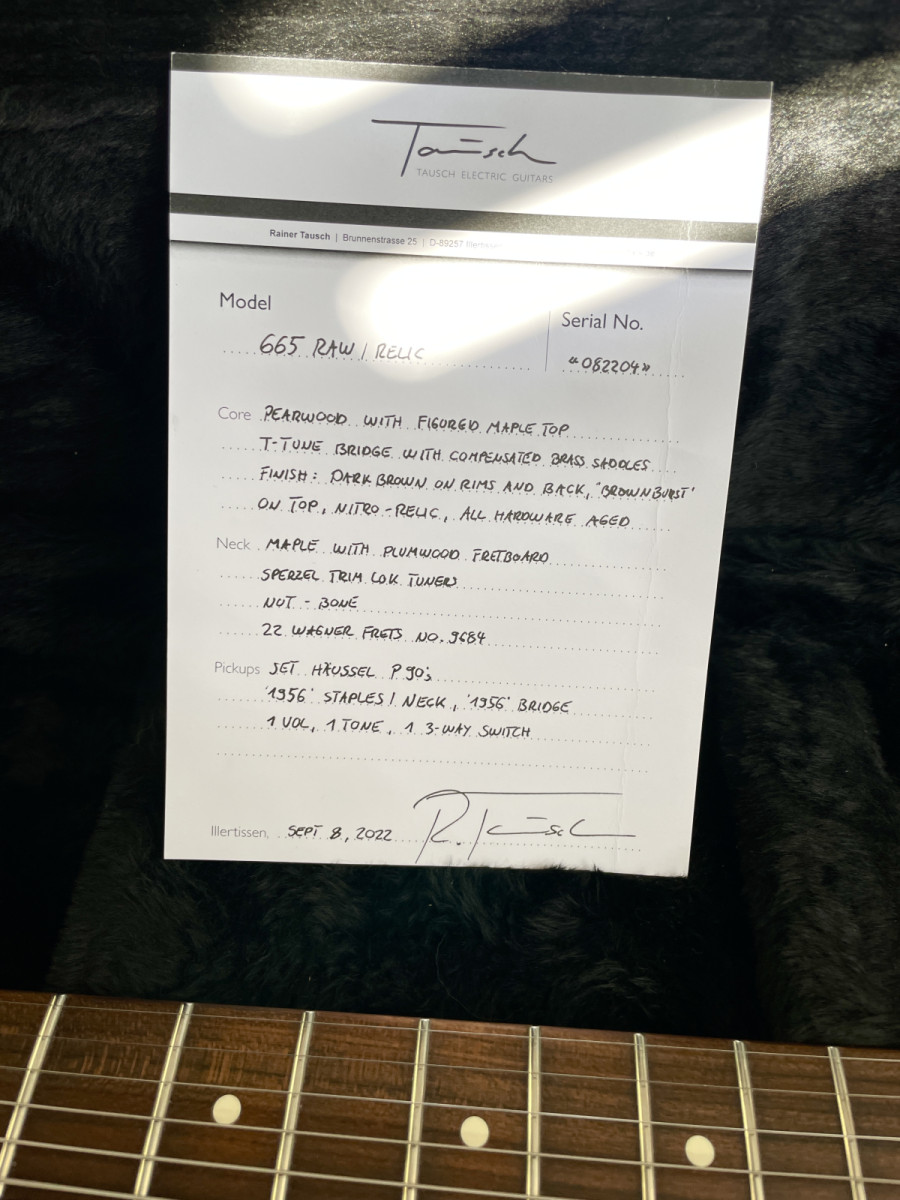 Tausch
TAUSCH ELECTRIC GUITARS
Rainer Tausch | Brunnenstrasse 25 | D-89257 Illertissen
Model
Serial No.
665 RAW / RELIC
"082204"
Core PEARWOOD WITH FIGURED MAPLE TOP
T-TUNE BRIDGE WITH COMPENSATED BRASS SADDLES
FINISH: DARK BROWN ON RIMS AND BACK, 'BROWNBURST'
ON TOP, NITRO-RELIC, ALL HARDWARE AGED
Neck MAPLE WITH PLUMWOOD FRETBOARD
SPERZEL TRIM LOK TUNERS
NUT - BONE
22 WAGNER FRETS NO. 9684
Pickups SET HÄUSSEL P90's
'1956' STAPLES / NECK, '1956' BRIDGE
1 VOL, 1 TONE, 1 3-WAY SWITCH
Illertissen, SEPT 8, 2022 R. Tausch